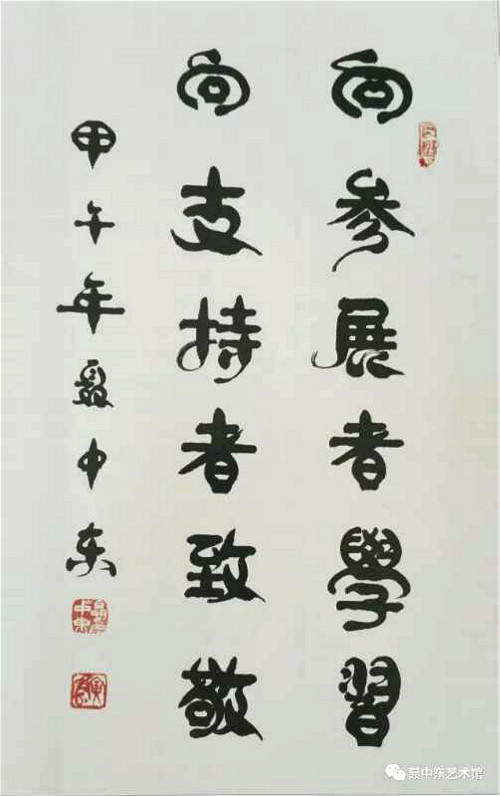 向参展者學習
向支持者致敬
甲午年聂中东
聂中东艺术馆